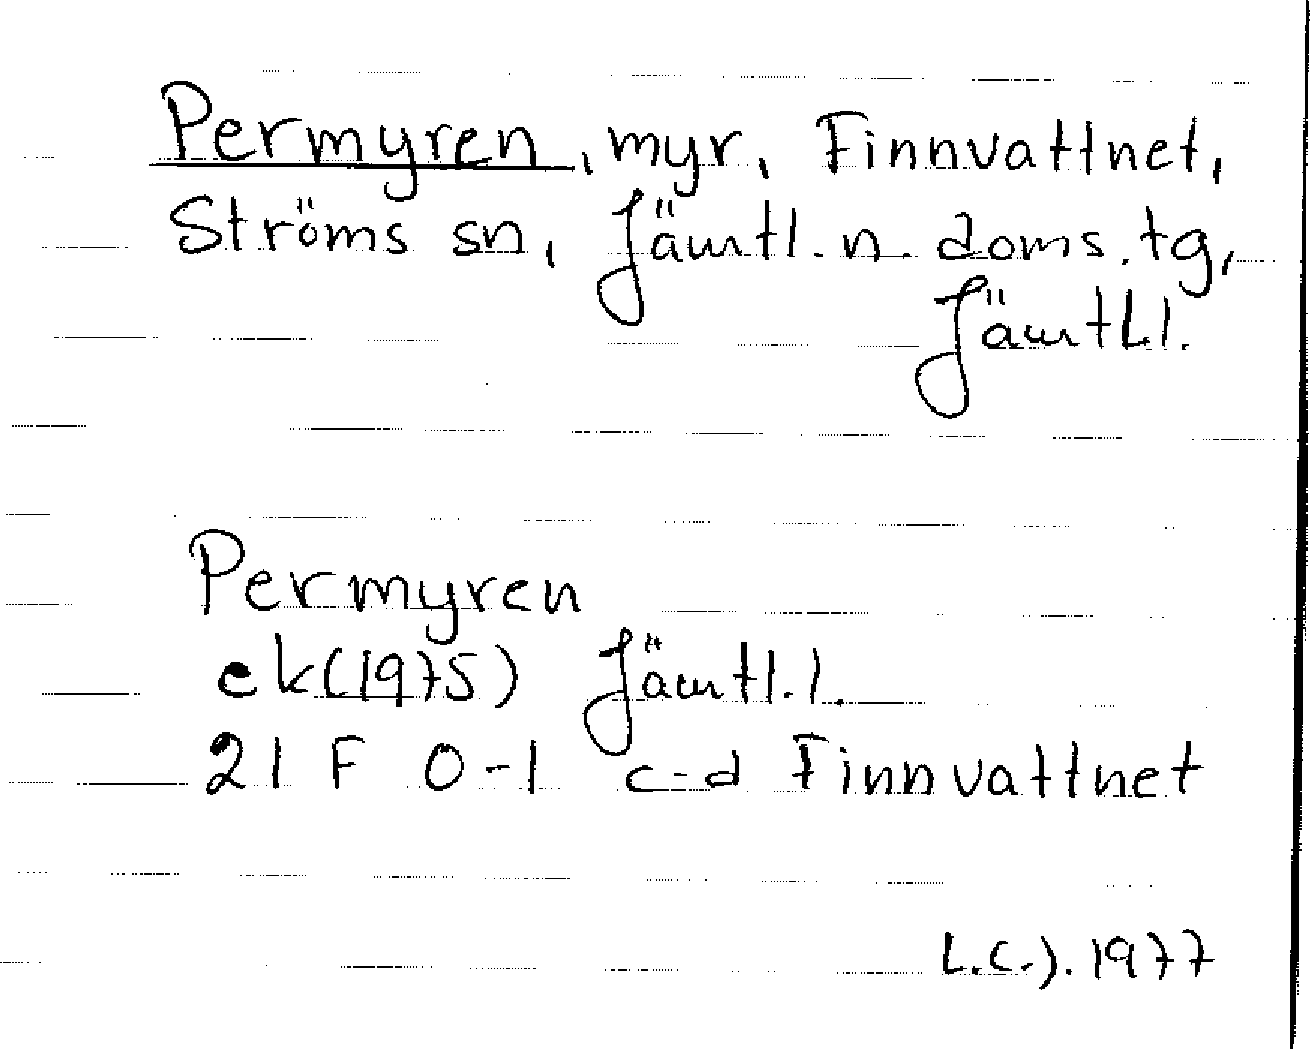 Permyren, myr, Finnvattnet,
Ströms sn, Jämtl. n. doms. tg,
Jämtl. l.
Permyren
ek (1975) Jämtl. l.
21 F 0-1 c-d Finnvattnet
L.C.J. 1977